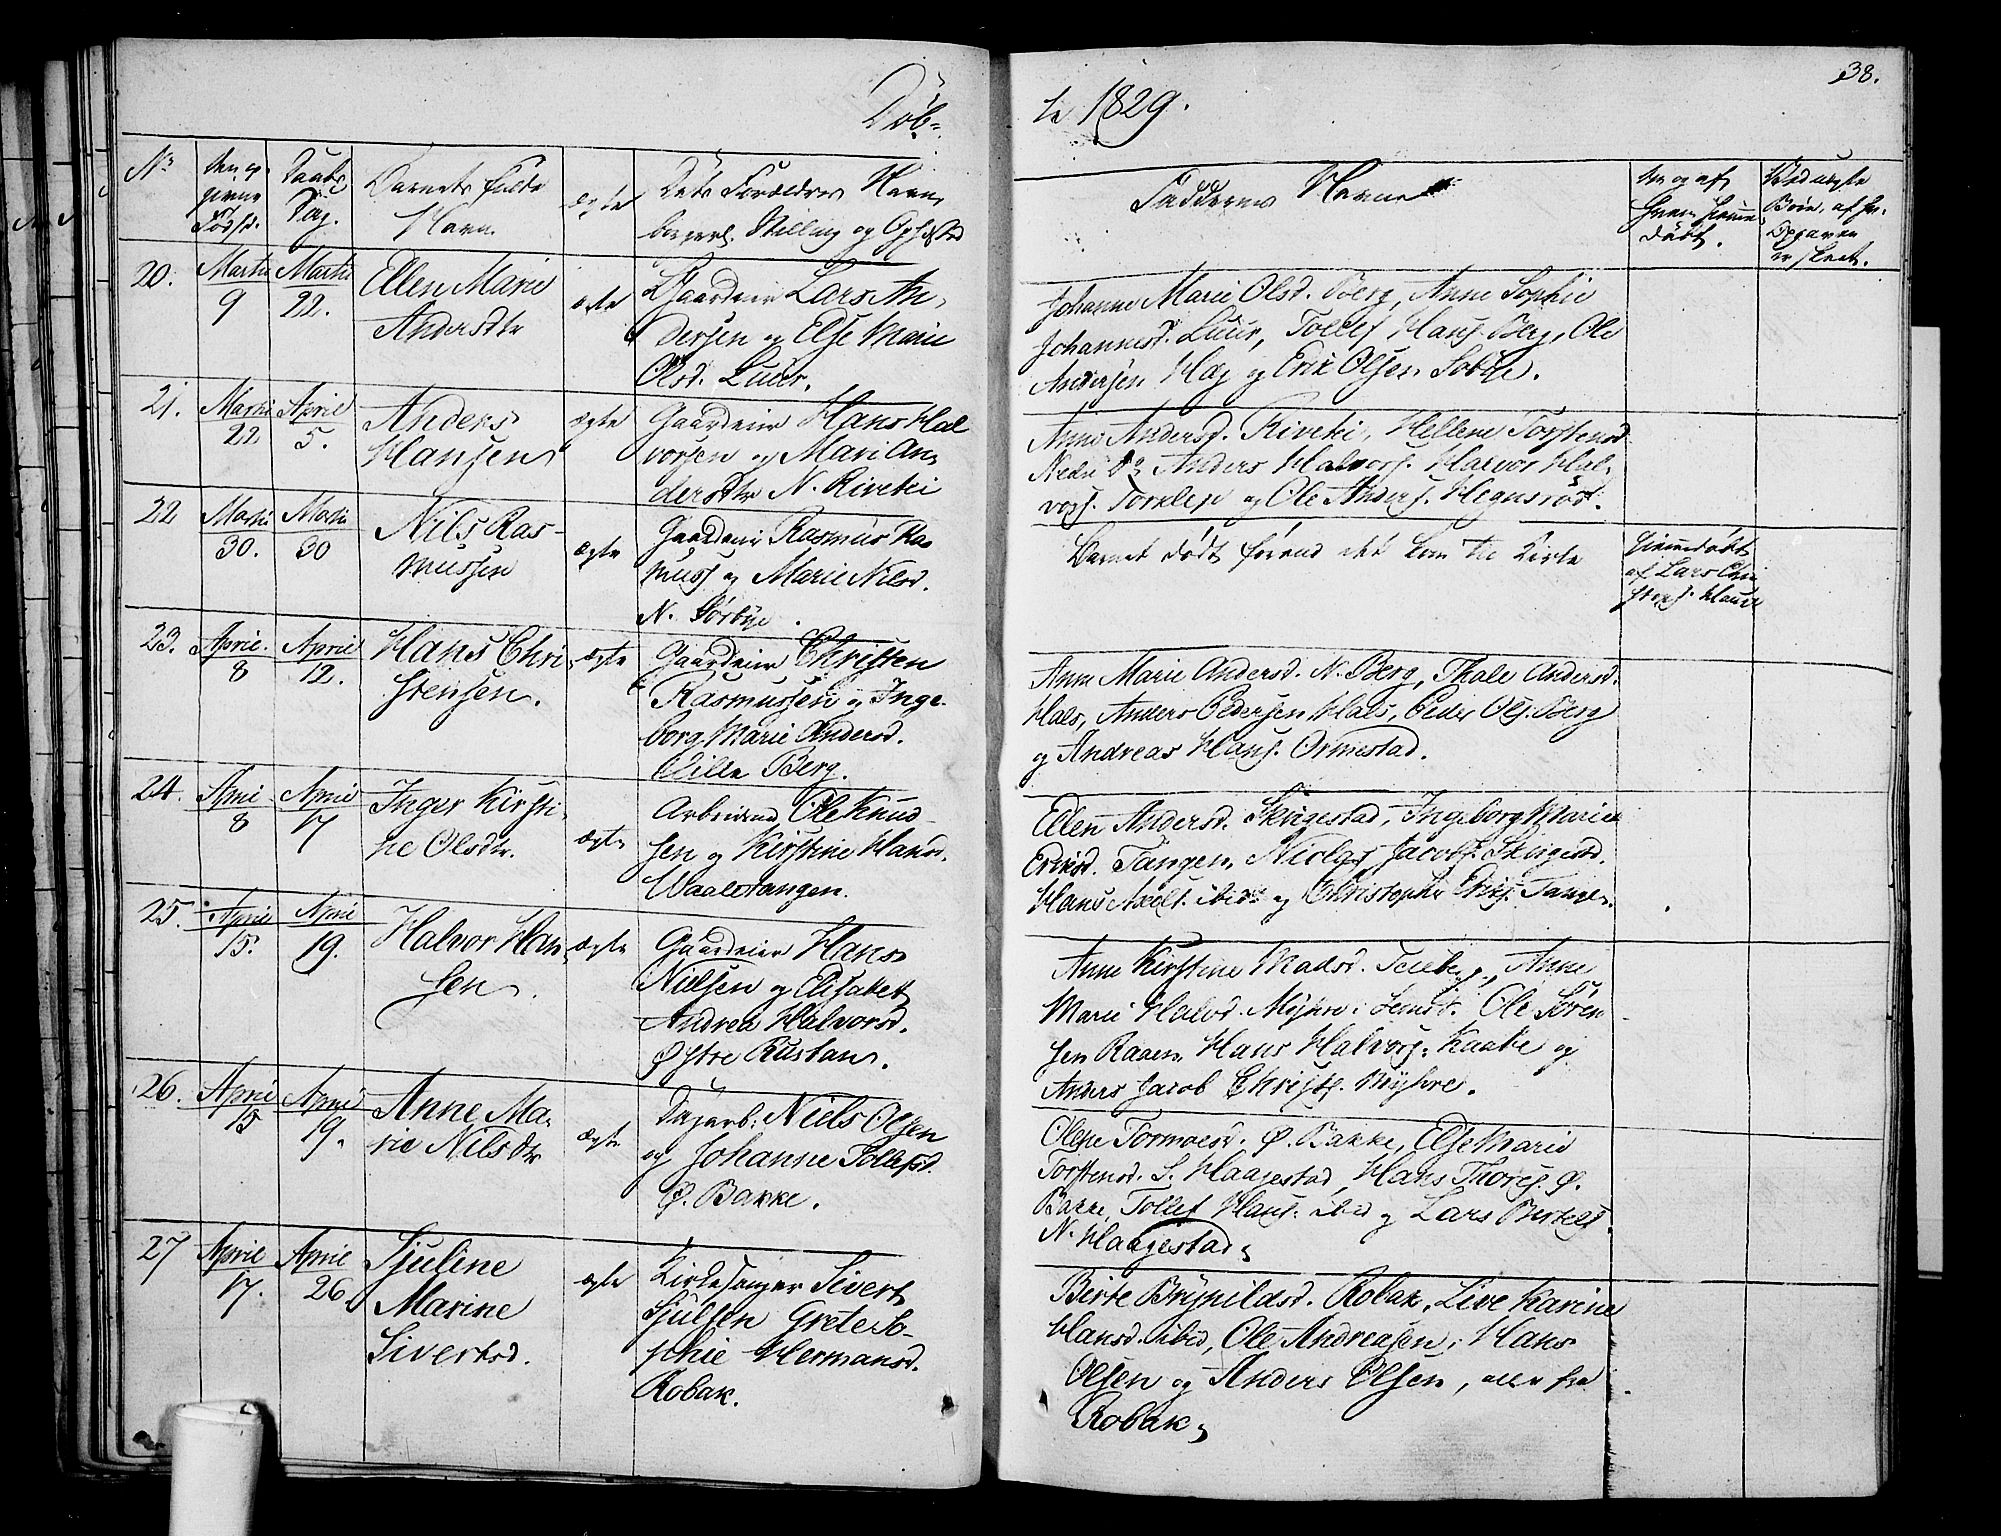 38.
Døb=
te 1829.
No
den op
givne
Fødsd.
Daabs
Dag.
Barnets fulde
Navn
ægte
Dets Forældres Navn,
borgerl. Stilling og Opholdssted
Faddernes Navne
20.
Martii 9
Martii 22.
Ellen Marie
Andersdtr
ægte
Gaardeier Lars An-
dersen og Else Marie
Olsd. Luur.
Johanne Marie Olsd. Berg, Anne Sophie
Johannesd. Luur, Tollef Hansf. Berg, Ole
Andersen Hag og Erik Olsen Sobye.
21.
Martii 22
April 5.
Anders
Hansen
ægte
Gaardeier Hans Hal
vorsen og Mari An
dersdtr N. Riveki
Anne Andersd. Riveki, Hellene Torstensd
Nedre do Anders Halvors. Halvor Hal-
vors. Torklep og Ole Anders. Hegnsrød.
22
Martii 30.
Martii 30
Nils Ras-
mussen
ægte
Gaardeier Rasmus Ras
muss og Marie Nilsd.
N. Sørbye.
Barnet død førend det kom til Kirke
Hiemmedøbt
af Lars Chri
stens. Hauge
23.
April 8
April 12.
Hans Chri
stensen.
ægte
Gaardeier Christen
Rasmussen og Inge-
borg Marie Andersd.
Lille Berg.
Anne Marie Andersd. N. Berg, Thale Andersd.
Hals, Anders Pedersen Hals, Peder Ols. Berg
og Andreas Hans. Ormestad.
24.
April 8
April 17
Inger Kirsti-
ne Olsdtr.
ægte
Arbeidsmd Ole Knud-
sen og Kirstine Hansd.
Waalstangen.
Ellen Andersd. Skrigestad, Ingeborg Marie
Eriksd. Tangen, Niclas Jacobs. Skrigestd.
Hans Axels. ibid og Christopher Eriks. Tangen.
25.
April 15.
April 19.
Halvor Han-
sen.
ægte
Gaardeier Hans
Nielsen og Elisabet
Andrea Halvorsd.
Østre Rustan.
Anne Kirstine Madsd. Teieberg, Anne
Marie Halvd. Myhre, Ole Søren
sen Raaen, Hans Halvors. Kaabe og
Anders Jacob Christs. Myhre.
26.
April 15
April 19.
Anne Ma-
rie Nilsdtr
ægte
Dagarb: Niels Olsen
og Johanne Tollefsd.
Ø. Bakke.
Olene Tormoesd. Ø. Bakke, Else Marie
Torstensd. S. Haagestad, Hans Thores. Ø.
Bakke, Tollef Hans. ibid og Lars Bertels.
N. Haagestad,
27
April 17.
April 26
Sjuline
Marine
Sivertsd.
ægte
Kirkesanger Sivert
Sjulsen Grete So-
phie Hermansd.
Robak.
Birte Brynildsd. Robak, Live Karine
Hansd. ibid, Ole Andreasen, Hans
Olsen og Anders Olsen, alle fra
Robak,